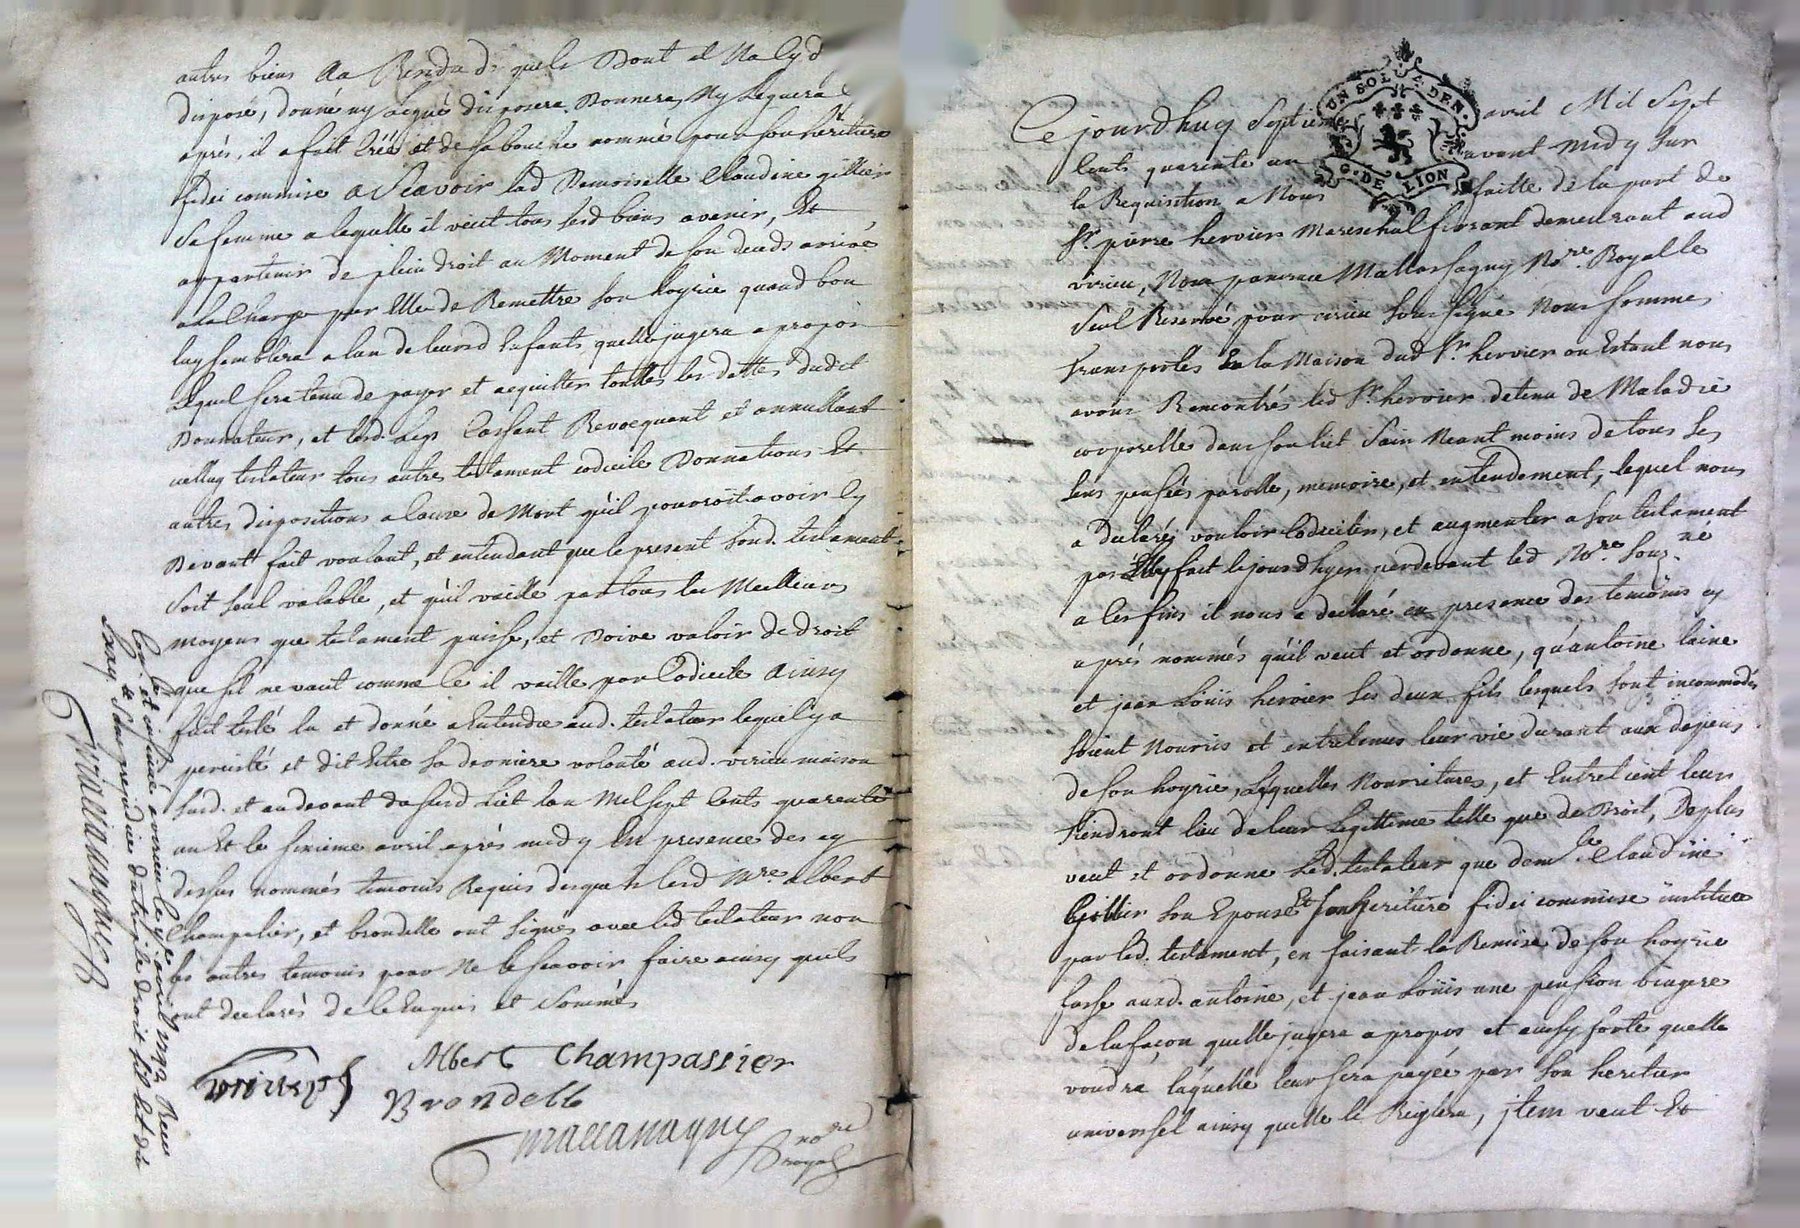 autres biens Au Residu desquels Dont il Na Cy d
disposé, donné ny légué disposera Donnera, Ny Leguera C
après, il a fait Créé et de sa bouche nommé pour son héritiere
fidei commise a Scavoir lad Demoiselle Claudine gillier
sa femme a laquelle il veut tous sesd biens avenir, Et
appartenir de plein droit au Moment de son deceds arrivé
a la Charge par Elle de Remettre son hoyrie quand bon
luy semblera a lun de leursd Enfants quelle jugera a propos
lequel sera tenu de payer et acquitter touttes les dettes dudit
Donnateur, et lesd. legs Cassant Revocquant et annullant
icelluy testateur tous autres testament codicile Donnations Et
autres dispositions a Cause de Mort qu'il pouroit avoir Cy
Devant fait voulant, et entendant que le present sond. testament
soit seul valable, et qu'il vaille par tous les Meilleurs
moyens que testament puisse, et Doive valoir de droit
que sil ne vaut comme Ce il vaille par Codicile Ainsy
fait testé lu et donné a Entendre aud. testateur lequel y a
percisté et dit Estre sa derniere volonté aud. virieu maison
susd. et audevant de sond Lit lan Mil sept Cents quarente
un Et le sixieme avril après midy En presence des cy
dessus nommés temoins Requis desquels lesd Mre. albert
Champelier, et brondelle ont Signés avec led testateur non
les autres temoins pour Ne le scavoir faire ainsy quils
ont declarés de ce Enquis et Sommés
Albert Champassier
Brondelle
maccanagny nore
royal
Con. et insinué a virieu le 17e avril 1792 Reçu
sans prejudice du triple droit sil est dû
Ce jourdhuy Septieme avril Mil Sept
UN SOL. A. DEN.
G. DE LION
Cents quarente un avant midy sur
la Requisition a Nous faitte de la part de
Sr. pierre hervier Mareschal ferrant demeurant aud
virieu, Nous Nore. Royal le
Seul Reservé pour virieu Sous signé Nous sommes
transportés En la Maison dud Sr. hervier ou Estant nous
avons Rencontrés led Sr. hervier detenu de Maladie
corporelle dans son lit Sain Neant moins de tous ses
sens pensées parolle, memoire, et entendement, lequel nous
a declaréz vouloir Codiciler, et augmenter a son testament
par Luy fait le jour dhyer pardevant led Nore. sousné
a ces fins il nous a declaré en presence des temoins cy
après nommés qu'il veut et ordonne, qu'antoine laine
et jean Loüis hervier ses deux fils lesquels sont incommodés
soient Nouris et entretenus leur vie durant aux depens
de son hoyrie, Lesquelles Nourritures, et Entretient leur
tiendront lieu de leur Legittime telle que de Droit, De plus
veut et ordonne Led. testateur que demlle Claudine
Gillier son Epouse Et son heritiere fidei commise instituee
par led. testament, en faisant la Remise de son hoyrie
fasse auxd. antoine, et jean Loüis une pension viagere
de la façon quelle jugera a propos, et aussy forte quelle
voudra laquelle leur sera payée par son heritier
universel ainsy quelle le Reiglera, jtem veut Et